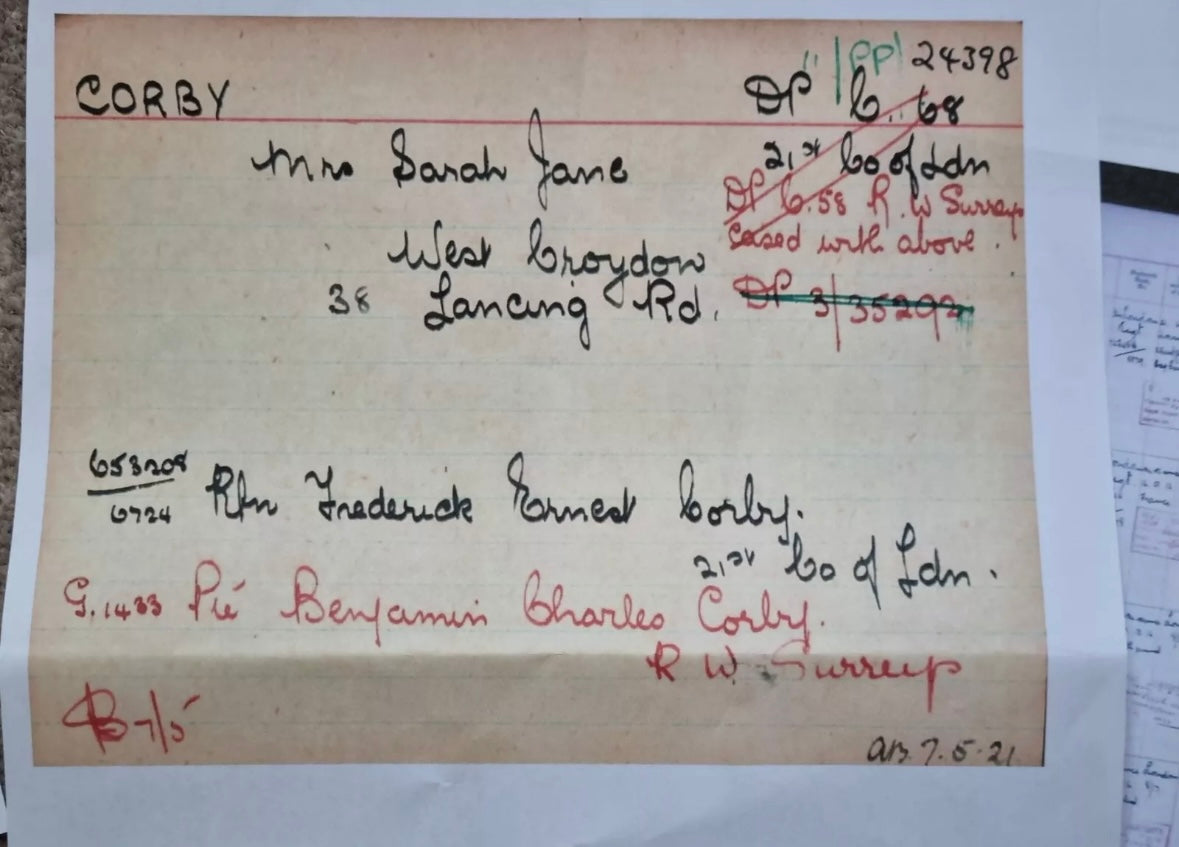 CORBY
" |PP| 24398
DP C. 68
Mrs Sarah Jane
21st Co of Ldn
DP C.58 R. W Surreys
Cased with above.
West Croydon
38 Lancing Rd.
DP 3/35292
653208
6724
Rfn Frederick Ernest Corby.
21st Co of Ldn.
G.1433 Pte Benjamin Charles Corby.
R W. Surreys
B 7/5
AB. 7.5.21